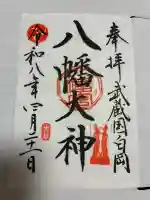 奉拝 武蔵国白岡
八幡大神
令和八年四月二十一日